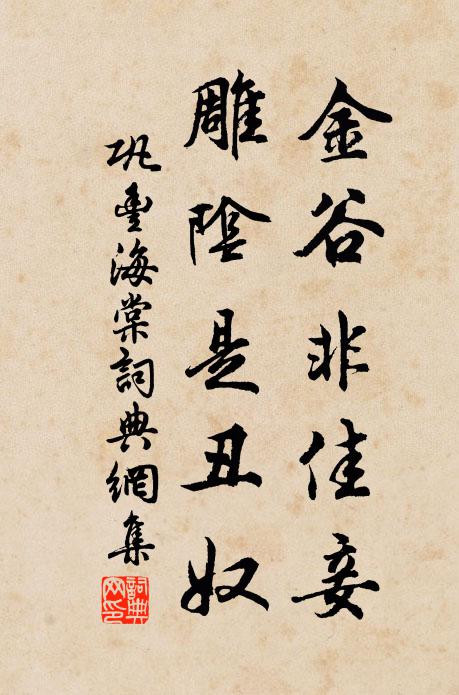 金谷非佳妾
雕陰是丑奴
巩豐海棠詞典網集
詞典
网印